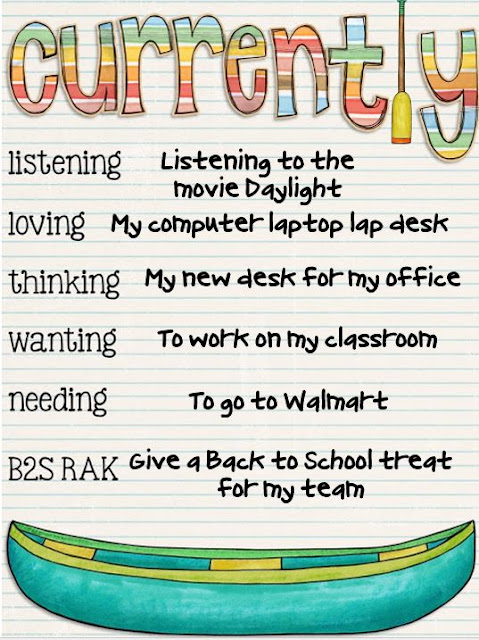 currently
listening Listening to the
movie Daylight
loving My computer laptop lap desk
thinking My new desk for my office
wanting To work on my classroom
needing To go to Walmart
B2S RAK Give a Back to School treat
for my team